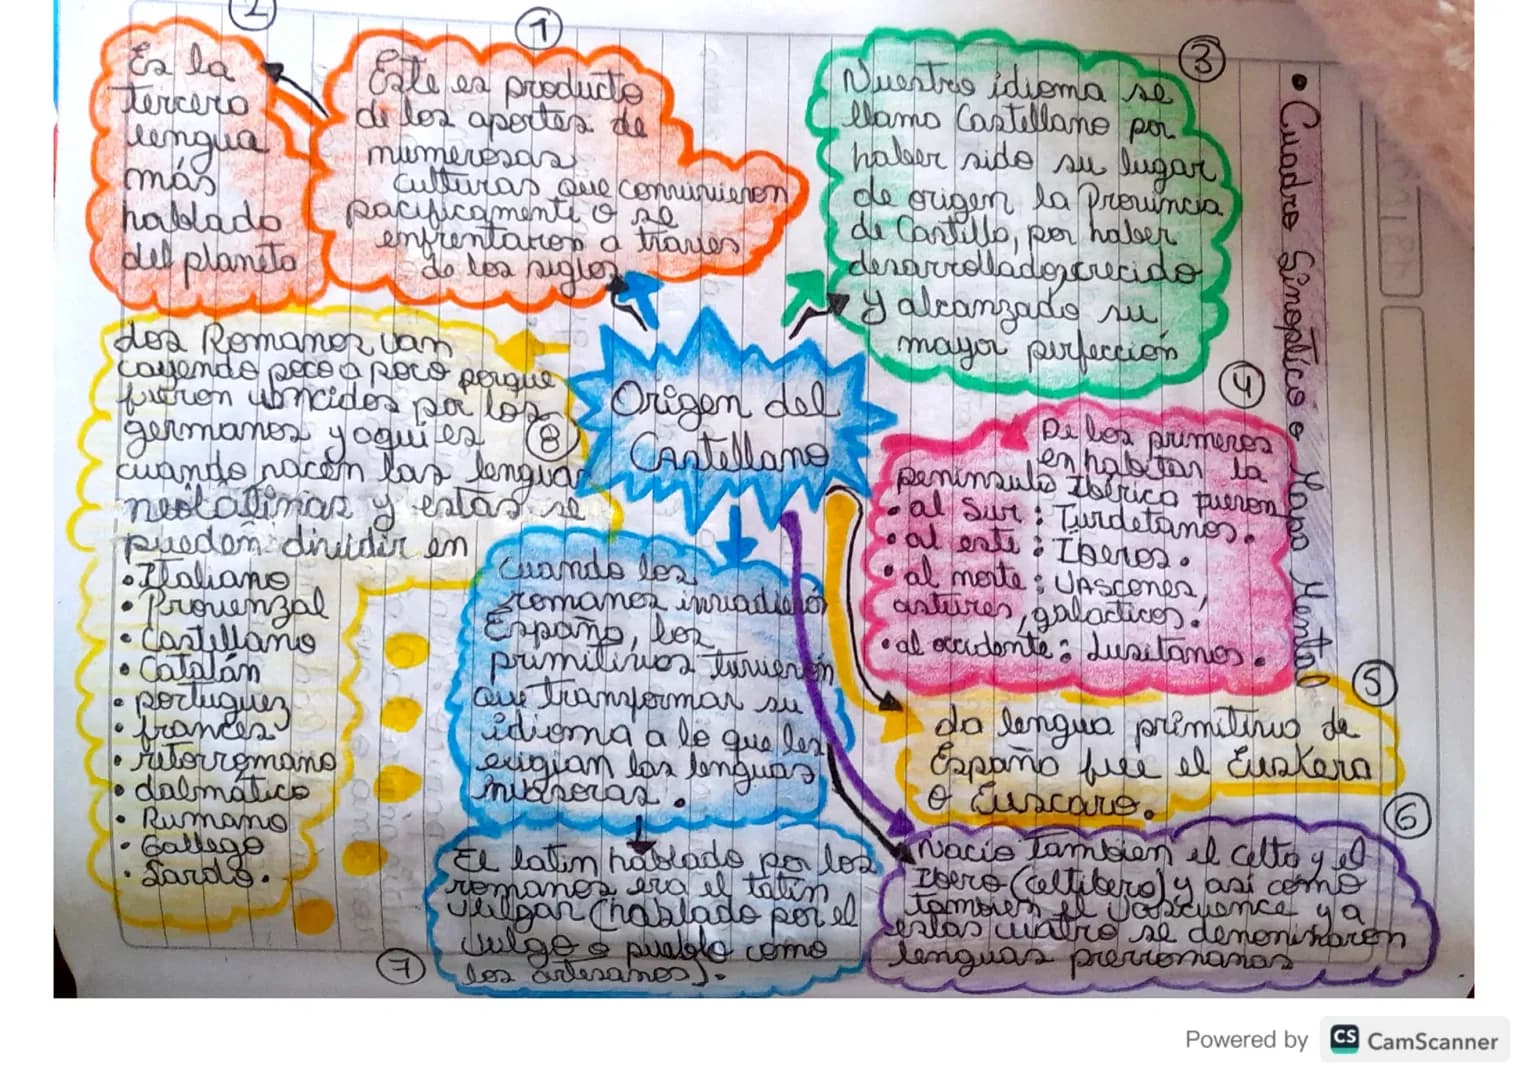 • Cuadro Sinoptico o Mapa Mental
Origen del
Castellano
1
Este es producto
de los aportes de
numerosas
culturas que convivieron
pacificamente o se
enfrentaron a traves
de los siglos
2
Es la
tercera
lengua
más
hablada
del planeta
3
Nuestro idioma se
llama Castellano por
haber sido su lugar
de origen la Provincia
de Castilla, por haber
desarrollado, crecido
y alcanzado su
mayor perfección
4
De los primeros
en habitar la
peninsula Ibérica fueron
• al Sur: Turdetanos.
• al este: Iberos.
• al norte: Vascones,
astures, galacticos.
• al occidente: Lusitanos.
5
La lengua primitiva de
España fue el Euskera
o Euscaro.
6
Nació tambien el celta y el
Ibero (celtibero) y así como
tambien el vascuence y a
estas cuatro se denominaron
lenguas prerromanas
cuando los
romanos invadieron
España, los
primitivos tuvieron
que transformar su
idioma a lo que les
exigian las lenguas
invasoras.
7
El latin hablado por los
romanos era el latin
vulgar (hablado por el
vulgo o pueblo como
los artesanos).
8
Los Romanos van
cayendo poco a poco porque
fueron vencidos por los
germanos y aqui es
cuando nacen las lenguas
neolatinas y estas se
pueden dividir en
• Italiano
• Provenzal
• Castellano
• Catalán
• portuguez
• frances
• retorromano
• dalmático
• Rumano
• Gallego
• Sardo.
Powered by CS CamScanner